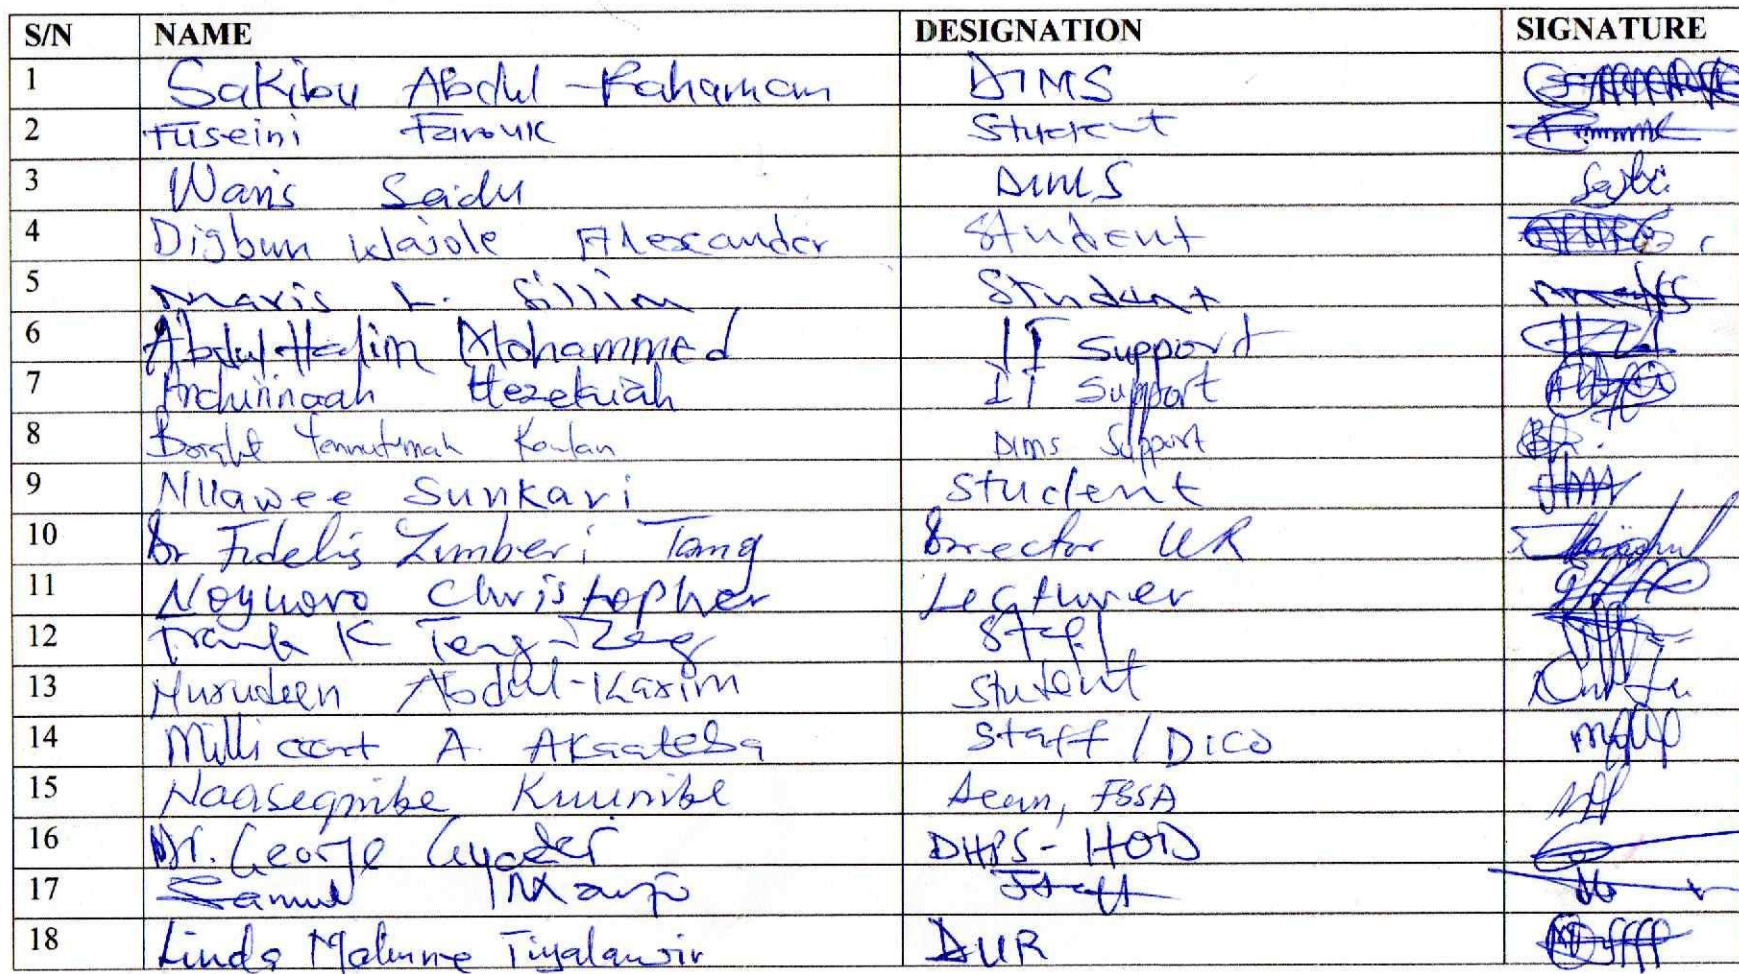 S/N NAME DESIGNATION SIGNATURE
1 Sakibu Abdul-Rahaman DIMS
2 Fuseini Farouk Student
3 Waris Seidu DIMS
4 Digbun Wajole Alexander Student
5 Maris L. Sillim Student
6 Abdul-Halim Mohammed IT Support
7 Achirinaah Hezekiah IT Support
8 DIMS Support
9 Sunkari Student
10 Dr Fidelis Zumberi Tang Director UR
11 Noyuoro Christopher Lecturer
12 Frank K Teng-Zeng Staff
13 Nurudeen Abdul-Karim Student
14 Millicent A. Akaateba Staff / DICO
15 Naasegnibe Kuunibe Dean, FBSA
16 Dr. George DHPS-HOD
17 Staff
18 Linda DUR